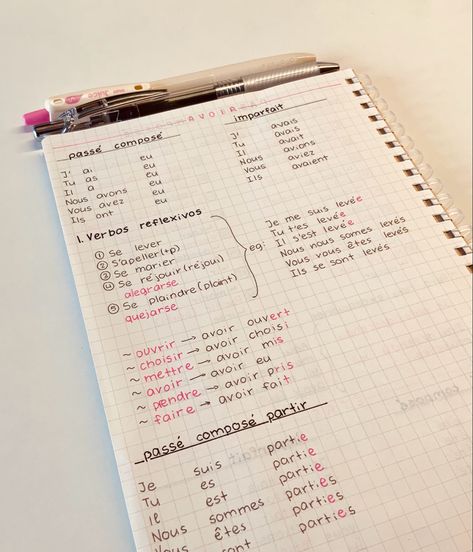 AVOIR
passé composé
J' ai eu
Tu as eu
Il a eu
Nous avons eu
Vous avez eu
Ils ont eu
imparfait
J' avais
Tu avais
Il avait
Nous avions
Vous aviez
Ils avaient
1. Verbos reflexivos
① Se lever
② S'apeller(+p)
③ Se marier
④ Se réjouir(réjoui)
alegrarse
⑤ Se plaindre(plaint)
quejarse
eg:
Je me suis levée
Tu t'es levée
Il s'est levée
Nous nous somes levés
Vous vous êtes levés
Ils se sont levés
~ ouvrir → avoir ouvert
~ choisir → avoir choisi
~ mettre → avoir mis
~ avoir → avoir eu
~ prendre → avoir pris
~ faire → avoir fait
passé composé partir
Je suis partie
Tu es partie
Il est partie
Nous sommes parties
Vous êtes parties
sont parties